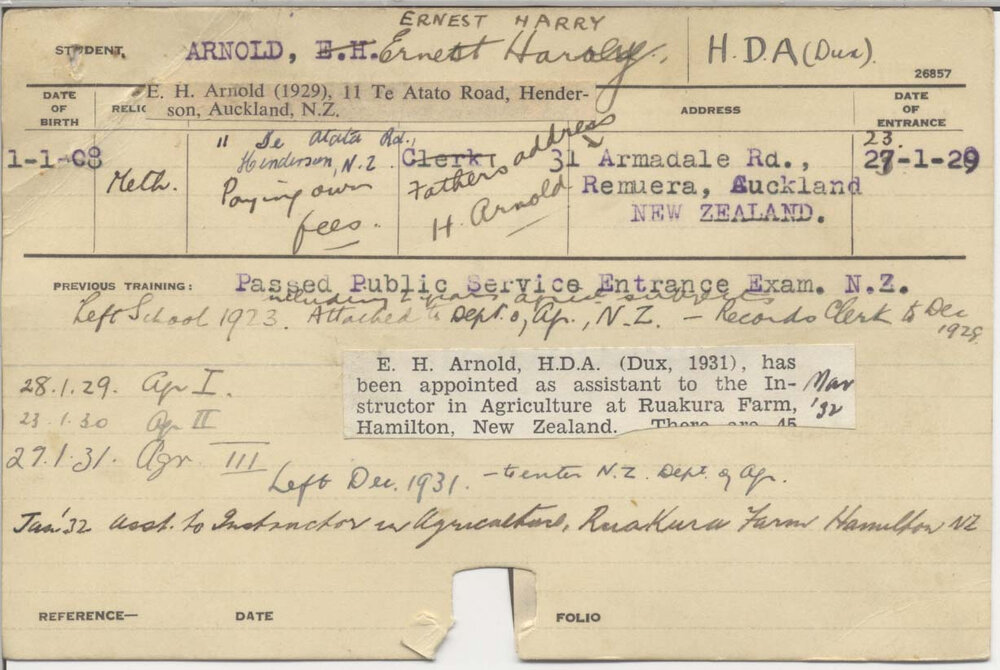 ERNEST HARRY
STUDENT, ARNOLD, E.H. Ernest Harry, H.D.A (Dux).
26857
DATE OF BIRTH
RELIG
E. H. Arnold (1929), 11 Te Atato Road, Hender-
son, Auckland, N.Z.
ADDRESS
DATE OF ENTRANCE
1-1-08
Meth.
" Te Atata Rd.,
Henderson, N.Z.
Paying own
fees.
Clerk
Fathers address
H. Arnold
31 Armadale Rd.,
Remuera, Auckland
NEW ZEALAND.
23.
27-1-29
PREVIOUS TRAINING: Passed Public Service Entrance Exam. N.Z.
including 2 years agric subjects
Left School 1923. Attached to Dept. of Ag., N.Z. - Records Clerk to Dec
1928
E. H. Arnold, H.D.A. (Dux, 1931), has
been appointed as assistant to the In-
structor in Agriculture at Ruakura Farm,
Hamilton, New Zealand. There are 45
Mar
'32
28.1.29. Agr I.
23.1.30 Agr II
27.1.31. Agr. III
Left Dec. 1931. - to enter N.Z. Dept. of Ag.
Jan '32 Asst. to Instructor in Agriculture, Ruakura Farm Hamilton NZ
REFERENCE— DATE FOLIO